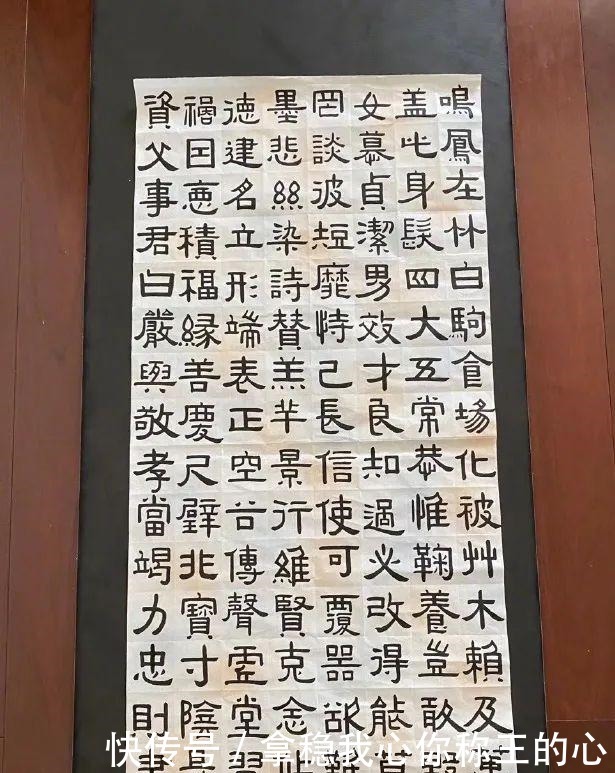 鳴鳳在林白駒食場化被艸木賴及
盖此身髮四大五常恭惟鞠養豈敢
女慕貞潔男效才良知過必改得能
罔談彼短靡恃己長信使可覆器欲
墨悲絲染詩賛羔羊景行維賢克念
徳建名立形端表正空谷傳聲虛堂
禍因惡積福緣善慶尺璧非寶寸陰
資父事君曰嚴與敬孝當竭力忠則
快传号 / 拿稳我心你称王的心